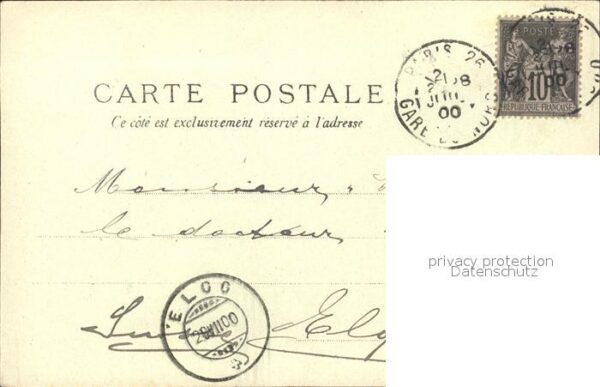 CARTE POSTALE
Ce côté est exclusivement réservé à l'adresse
PARIS 26
GARE DU NORD
28
JUIL
00
POSTE
10
REPUBLIQUE FRANÇAISE
Monsieur
le docteur
ELGG
28 VII 00
privacy protection
Datenschutz